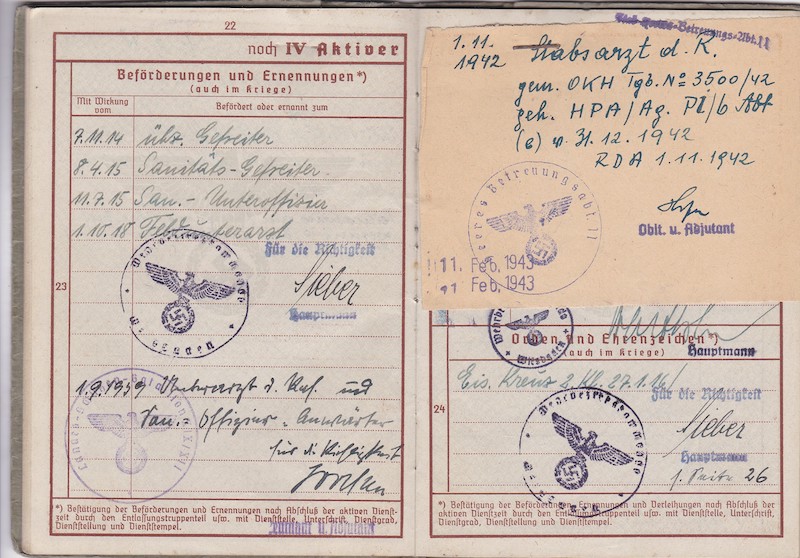 22
noch IV Aktiver
Beförderungen und Ernennungen*)
(auch im Kriege)
Mit Wirkung vom
Befördert oder ernannt zum
7.11.14 übz. Gefreiter
8.4.15 Sanitäts-Gefreiter
11.7.15 San.-Unteroffizier
1.10.18 Feldunterarzt
Für die Richtigkeit
Sieber
Hauptmann
23
1.9.1939 Unterarzt d. Res. und
San. Offizier-Anwärter
für die Richtigkeit
Leutnant u. Adjutant
*) Bestätigung der Beförderungen und Ernennungen nach Abschluß der aktiven Dienst-
zeit durch den Entlassungstruppenteil usw. mit Dienststelle, Unterschrift, Dienstgrad,
Dienststellung und Dienststempel.
Betreuungs-Abt. 11
1.11. Stabsarzt d. R.
1942
gem. OKH Tgb. No 3500/42
geh. HPA/Ag. P1/6 Abt
(e) v. 31.12.1942
RDA 1.11.1942
Heeres Betreuungsabt. 11
Oblt. u. Adjutant
11. Feb. 1943
11 Feb. 1943
Wiesbaden
Hauptmann
Orden und Ehrenzeichen*)
(auch im Kriege)
Eis. Kreuz 2. Kl. 27.1.16
Für die Richtigkeit
24
Sieber
Hauptmann
s. Seite 26
*) Bestätigung der Beförderungen, Ernennungen und Verleihungen nach Abschluß der
aktiven Dienstzeit durch den Entlassungstruppenteil usw. mit Dienststelle, Unterschrift,
Dienstgrad, Dienststellung und Dienststempel.